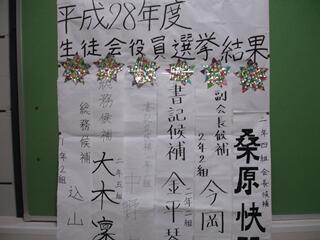 平成28年度
生徒会役員選挙結果
二年四組 会長候補
桑原快
副会長候補
2年2組
今岡
書記候補
二年二組
金平琴
中野
総務候補
二年五組
大木凜
総務候補
1年2組
込山